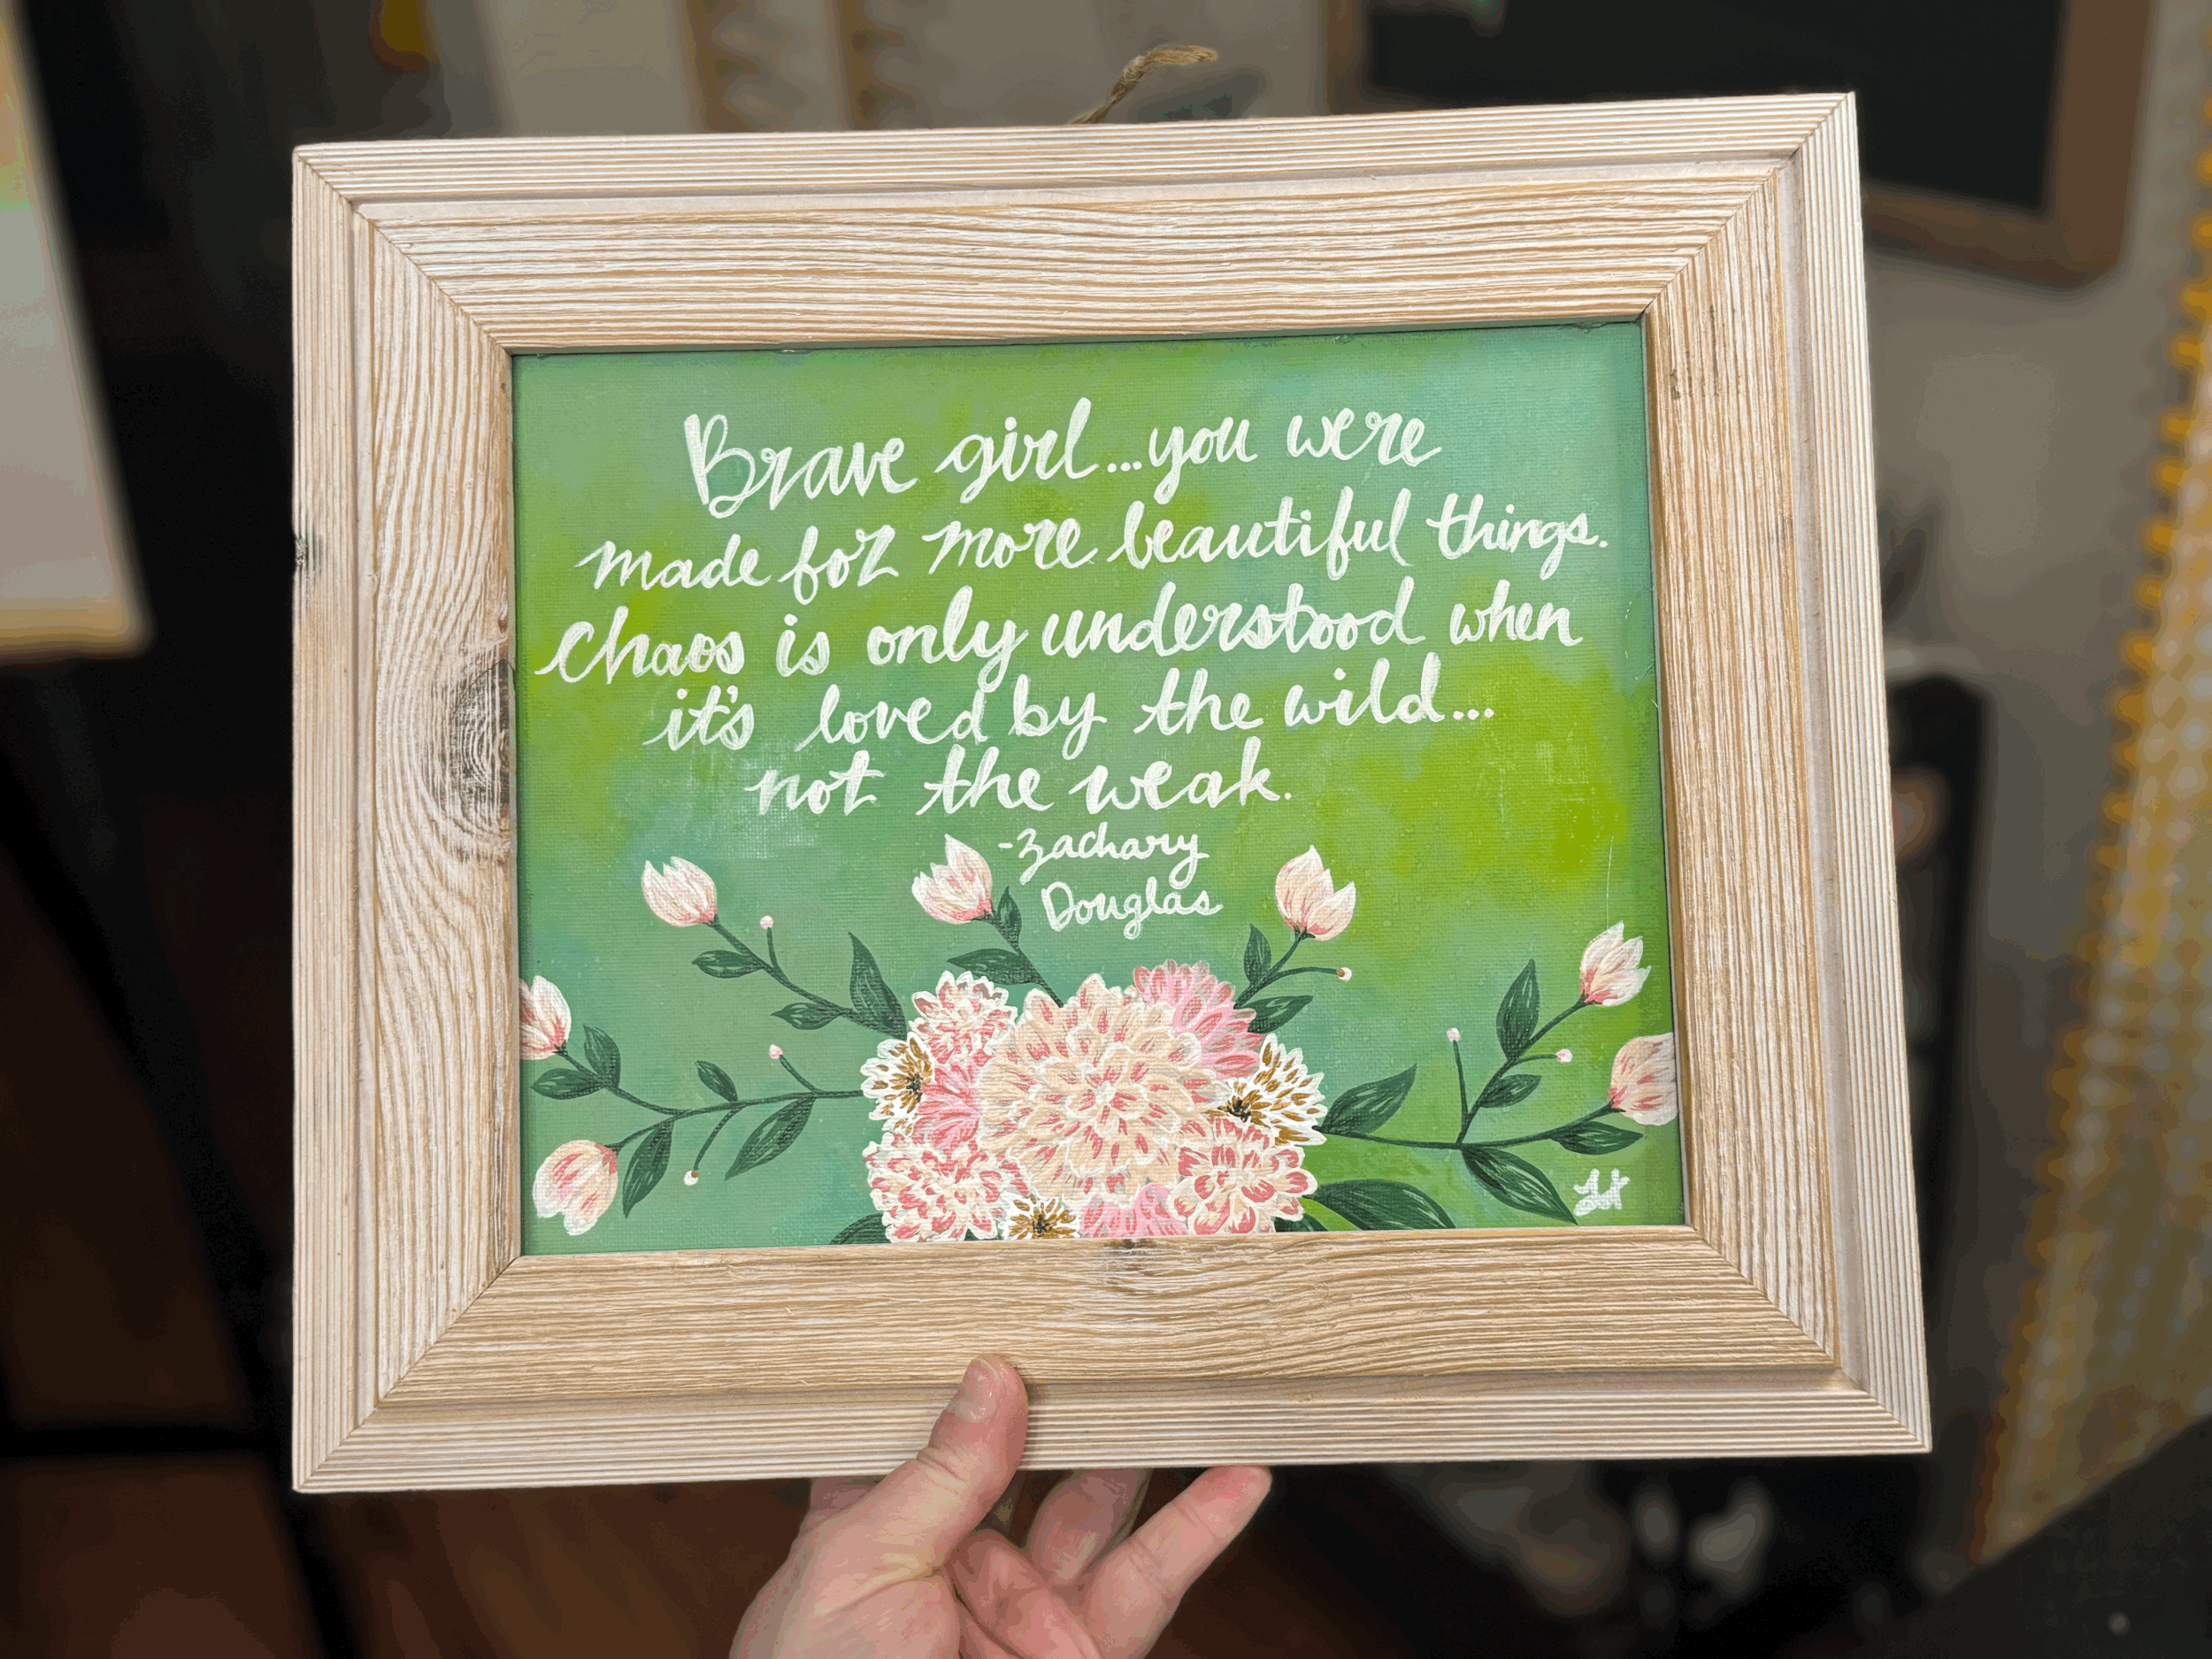 Brave girl...you were
made for more beautiful things.
chaos is only understood when
it's loved by the wild...
not the weak.
-Zachary
Douglas